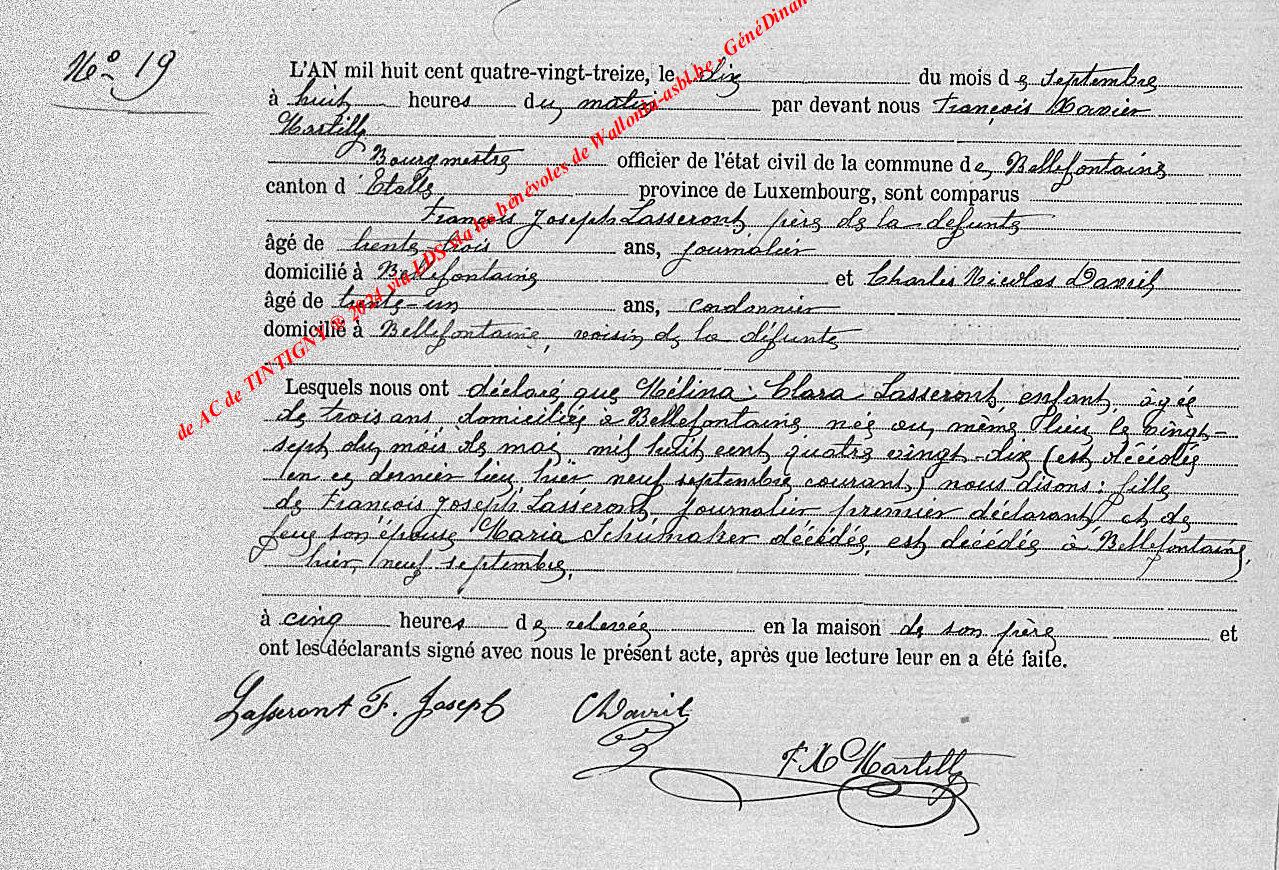 No 19
L'AN mil huit cent quatre-vingt-treize, le dix du mois de septembre
à huit heures du matin par devant nous François Xavier
Martilly
Bourgmestre officier de l'état civil de la commune de Bellefontaine
canton d Etalle province de Luxembourg, sont comparus
François Joseph Lasseront, père de la defunte
âgé de trente-trois ans, journalier
domicilié à Bellefontaine et Charles Nicolas Davril
âgé de trente-un ans, cordonnier
domicilié à Bellefontaine, voisin de la défunte
Lesquels nous ont déclaré que Mélina Clara Lasseront, enfant, âgée
de trois ans, domiciliée à Bellefontaine née au même lieu le vingt-
sept du mois de mai mil huit cent quatre vingt-dix (est décédée
en ce dernier lieu hier neuf septembre courant,) nous disons: fille
de François Joseph Lasseront, journalier premier déclarant, et de
feue son épouse Maria Schumaker décédée, est decedée à Bellefontaine,
hier, neuf septembre,
à cinq heures de relevée en la maison de son père et
ont les déclarants signé avec nous le présent acte, après que lecture leur en a été faite.
Lasseront F. Joseph Davril
F X Martilly
de AC de TINTIGNY © 2024 via LDS via les bénévoles de Wallonia-asbl.be, GénéDinan